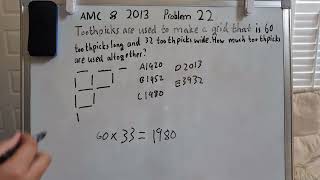 AMC 8 2013 Problem 22
Toothpicks are used to make a grid that is 60
toothpicks long and 32 toothpicks wide. How much toothpicks
are used altogether?
A)1920 D)2013
B)1952 E)3932
C)1980
60 x 33 = 1980